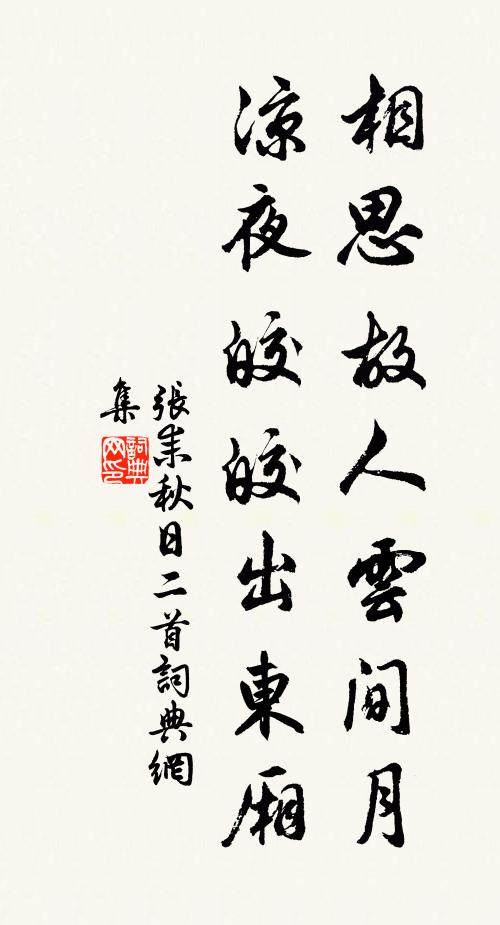 相思故人雲間月
涼夜皎皎出東廂
張耒秋日二首詞典網
集
詞典
网印